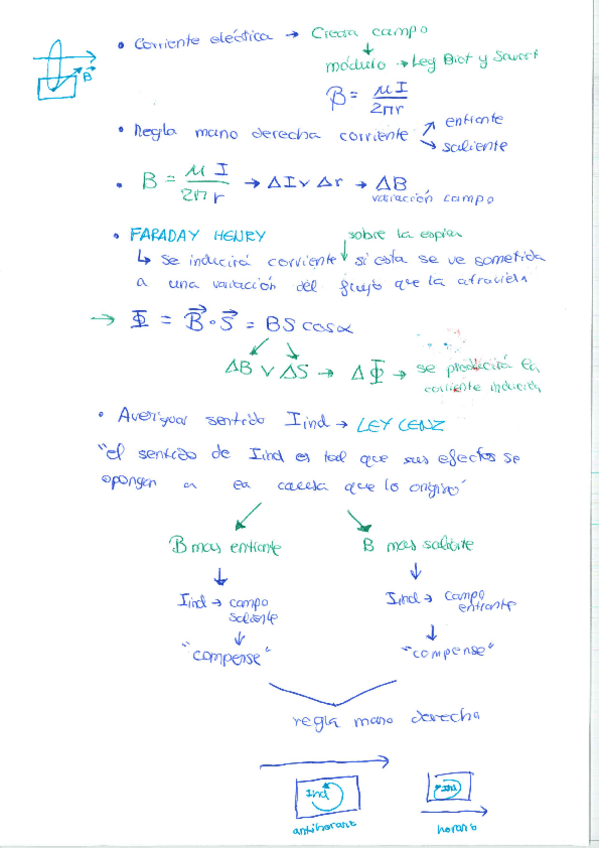 • Corriente eléctrica → Crean campo
↓
módulo → Ley Biot y Savart
B = μI / 2πr
B
• Regla mano derecha corriente ↗ entrante
↘ saliente
• B = μ I / 2π r → ΔI v Δr → ΔB
variación campo
• FARADAY HENRY
sobre la espira
↳ se inducirá corriente ↓ si esta se ve sometida
a una variación del flujo que la atraviesa
→ Φ = B · S = BS cosα
ΔB v ΔS → ΔΦ → se producirá la
corriente inducida
• Averiguar sentido Iind → LEY LENZ
"el sentido de Iind es tal que sus efectos se
opongan a la causa que lo origina"
B mas entrante
B mas saliente
Iind → campo
saliente
Iind → campo
entrante
"compense"
"compense"
regla mano derecha
Ind
Ind
antihorario
horario